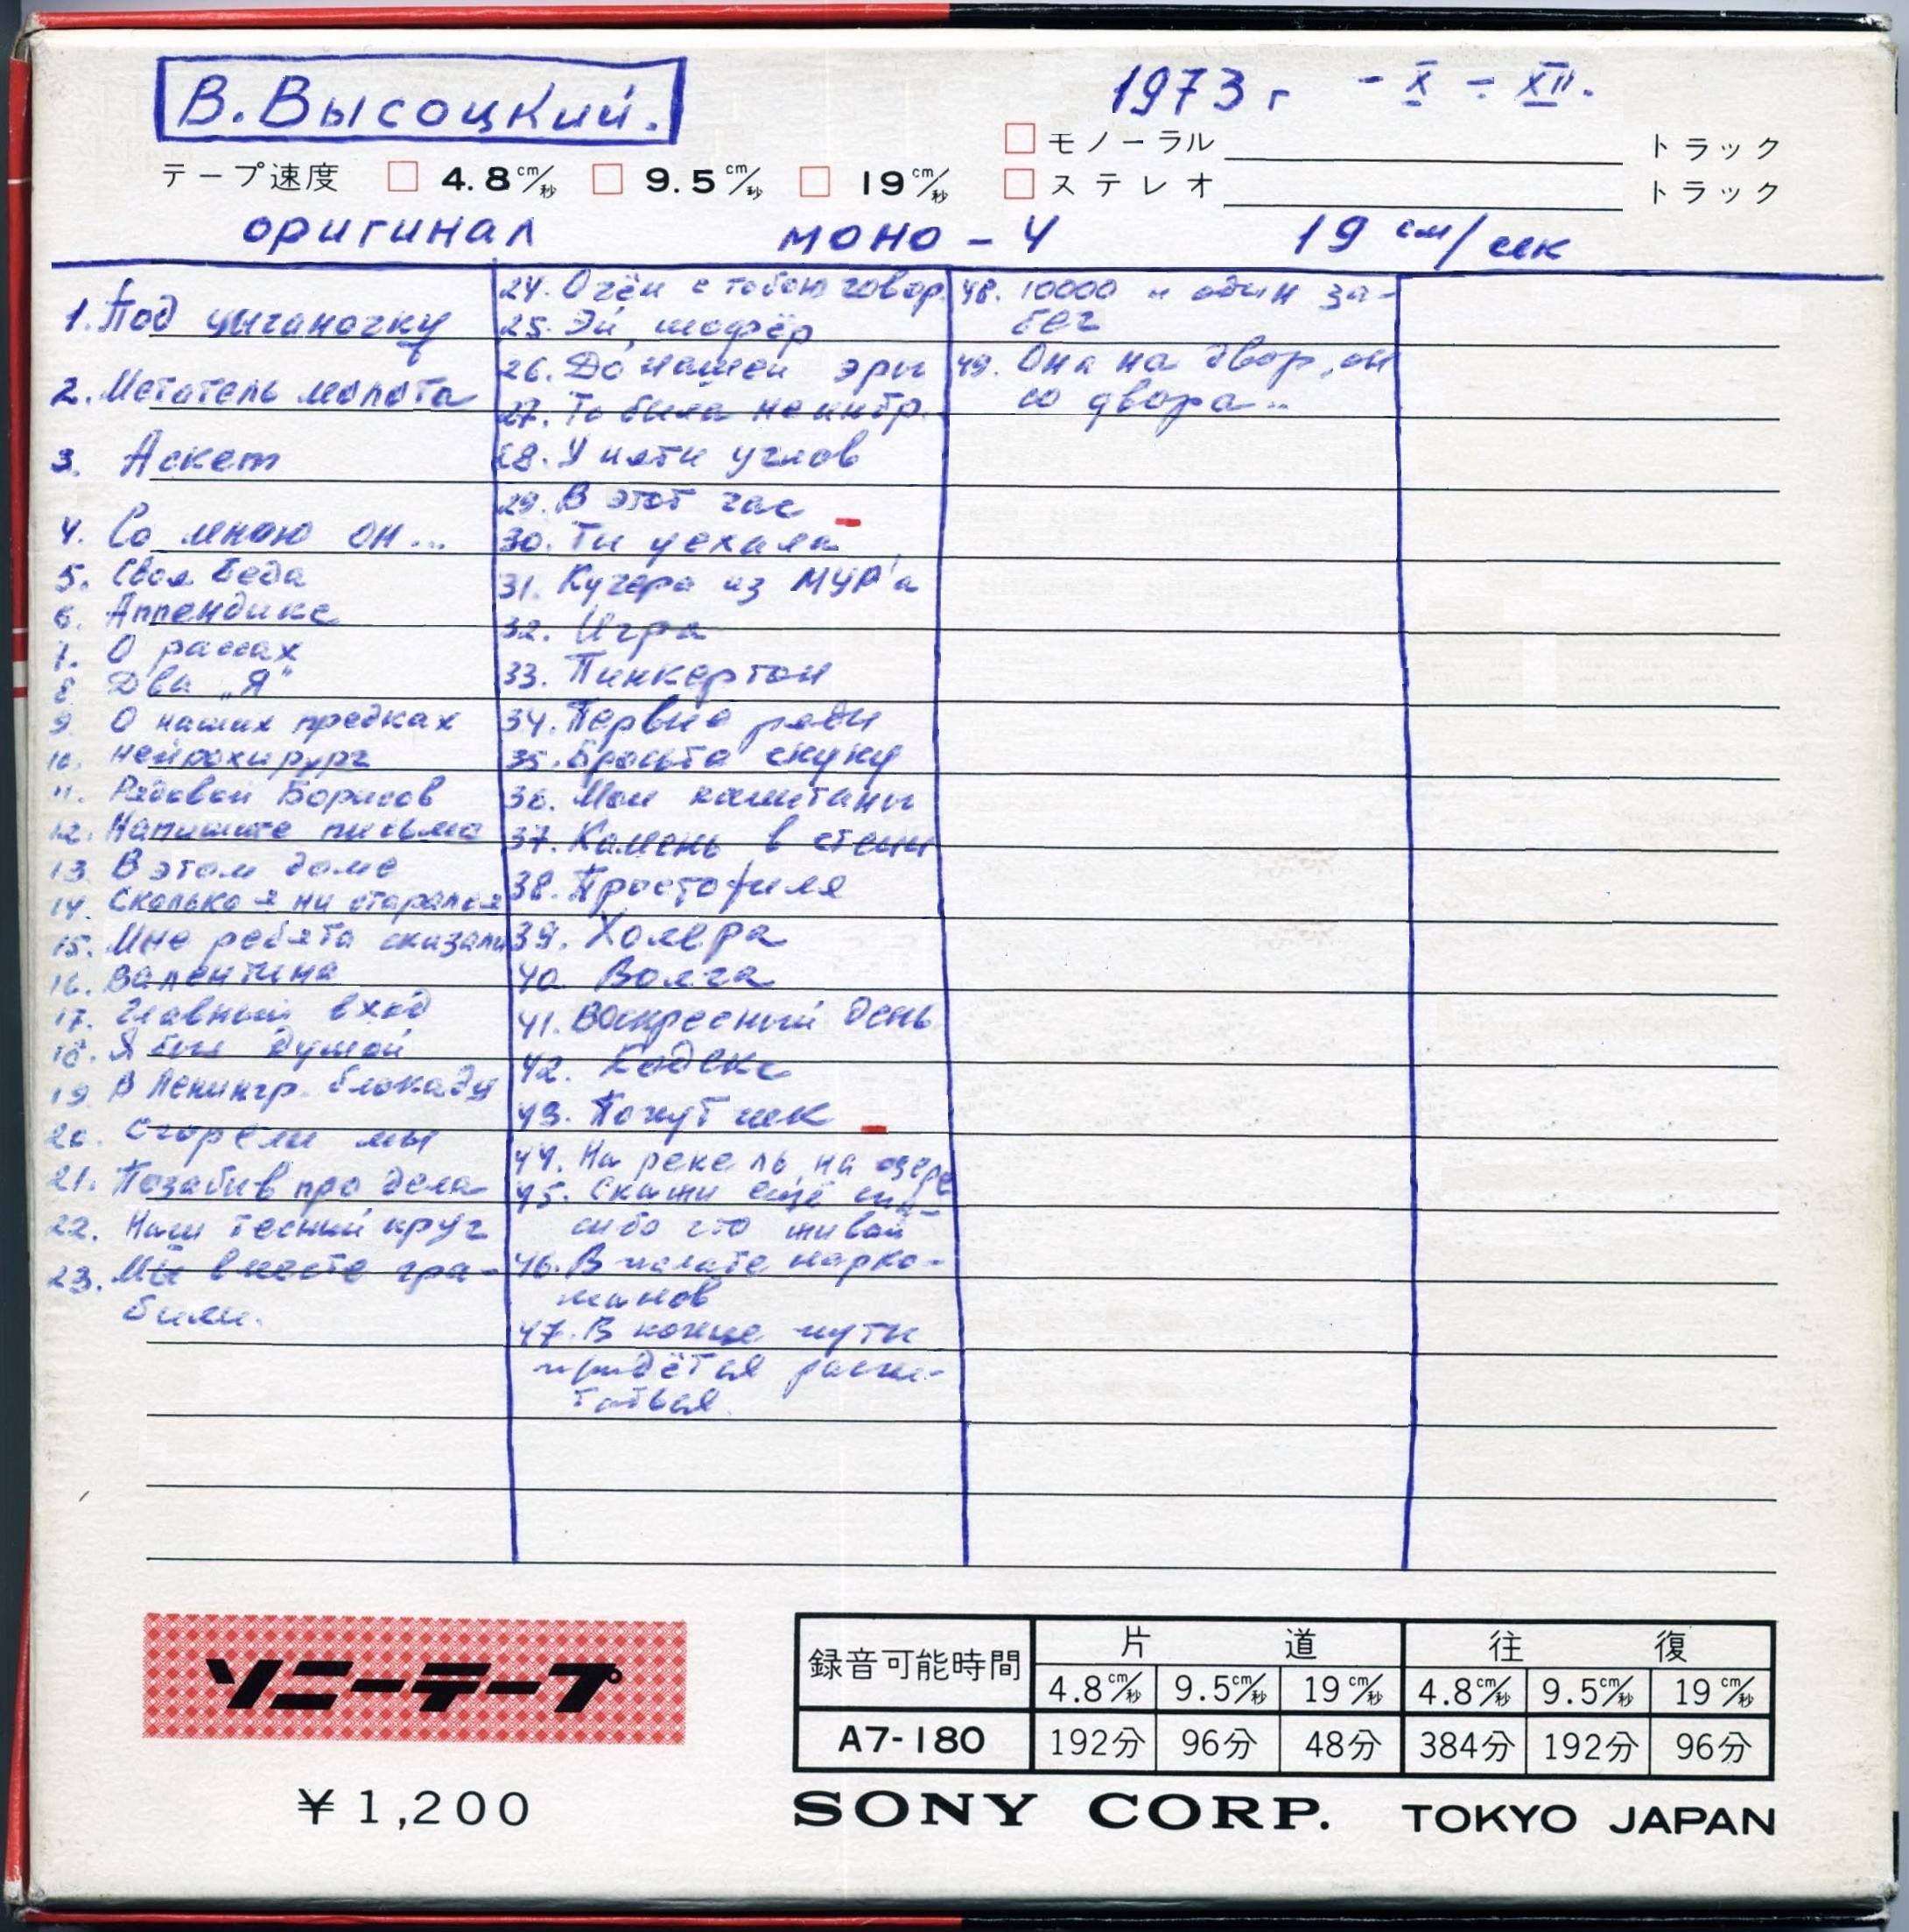 В. Высоцкий.
1973 г - X ÷ XII.
モノーラル トラック
テープ速度 4.8 cm/秒 9.5 cm/秒 19 cm/秒
ステレオ トラック
оригинал моно - 4 19 см/сек
1. Под цыганочку
2. Метатель молота
3. Аскет
4. Со мною он...
5. Своя беда
6. Аппендикс
7. О расах
8 Два „Я"
9. О наших предках
10. Нейрохирург
11. Рядовой Борисов
12. Напишите письмо
13. В этом доме
14. Сколько я ни старался
15. Мне ребята сказали
16. Валентина
17. Главный вход
18. Я был душой
19. В Ленингр. блокаду
20. Сгорели мы
21. Позабыв про дела
22. Наш тесный круг
23. Мы вместе гра-
били.
24. О чём с тобою говор.
25. Эй, шофёр
26. До нашей эры
27. Та была не интр.
28. У пяти углов
29. В этот час
30. Ты уехала
31. Кучера из МУР'а
32. Игра
33. Пинкертон
34. Первые ряды
35. Бросьте скуку
36. Мои капитаны
37. Камень в стены
38. Простофиля
39. Холера
40. Волга
41. Воскресный день
42. Кодекс
43. Попутчик
44. На реке ль, на озере
45. Скажи ещё спа-
сибо что живой
46. В палате нарко-
манов
47. В конце пути
придётся рассчи-
таться.
48. 10000 и один за-
бег
49. Она на двор, он
со двора...
ソニーテープ
¥1,200
録音可能時間 片道 往復
4.8 cm/秒 9.5 cm/秒 19 cm/秒 4.8 cm/秒 9.5 cm/秒 19 cm/秒
A7-180 192分 96分 48分 384分 192分 96分
SONY CORP. TOKYO JAPAN